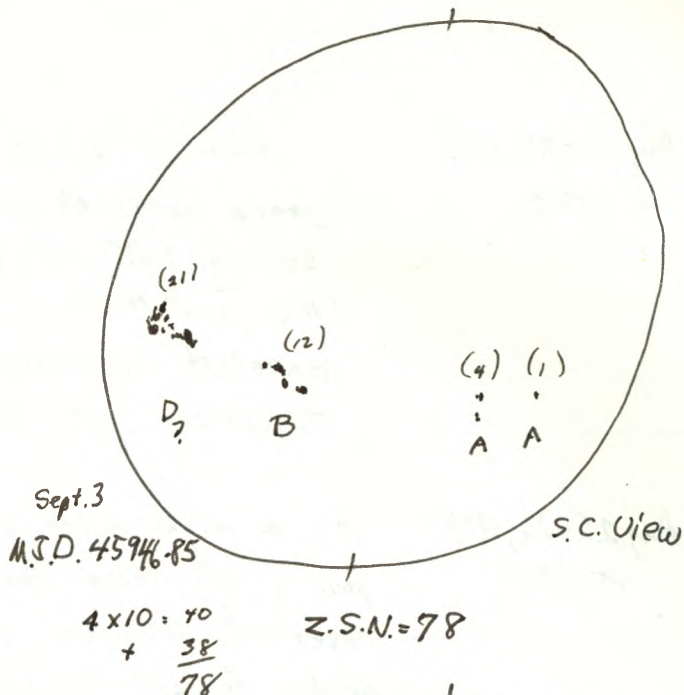 (21)
(12)
(4) (1)
D?
B
A A
Sept. 3
M.J.D. 45946.85
S.C. View
4 x 10 = 40
+ 38
78
Z.S.N. = 78